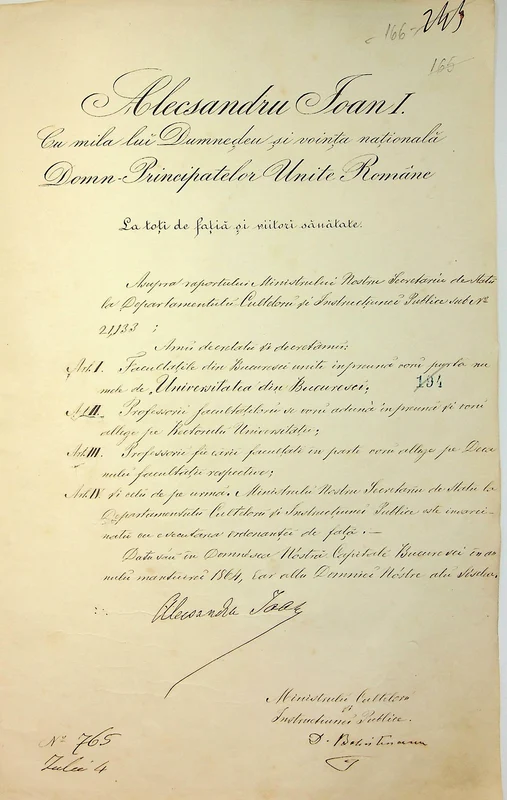 166 245
166
Alecsandru Ioan I.
Cu mila lui Dumnedeu și voința națională
Domn-Principatelor Unite Române
La toți de față și viitori sănătate.
Asupra raportului Ministrului Nostru Secretariu de Statu
la Departamentulu Cultelorŭ și Instrucțiunei Publice sub Nº
21133 ;
Amŭ decretatŭ și decretămŭ:
Art. I. Facultățile din Bucuresci unite inpreună vorŭ purta nu
mele de „Universitatea din Bucuresci. 194
Art. II. Professorii facultațilorŭ se vorŭ aduna inpreună și vorŭ
allege pe Rectorulŭ Universitații;
Art. III. Professorii fie-cărei facultate in parte vorŭ allege pe Deca
nulŭ facultații respective;
Art. IV. și celŭ de pe urmă. Ministrulŭ Nostru Secretariu de Statu la
Departamentulŭ Cultelorŭ și Instrucțiunei Publice este insarci-
natŭ cu executarea ordonanței de față.—
Datu-s'au in Domnésca Nóstră Capitală Bucuresci in an
nulŭ mantuirei 1864, éar allu Domniei Nóstre alŭ
Alecsandru Ioan
Ministrulŭ Cultelorŭ
și
Instrucțiunei Publice.
D. Bolintineanu
Nº 765
Iulii 4